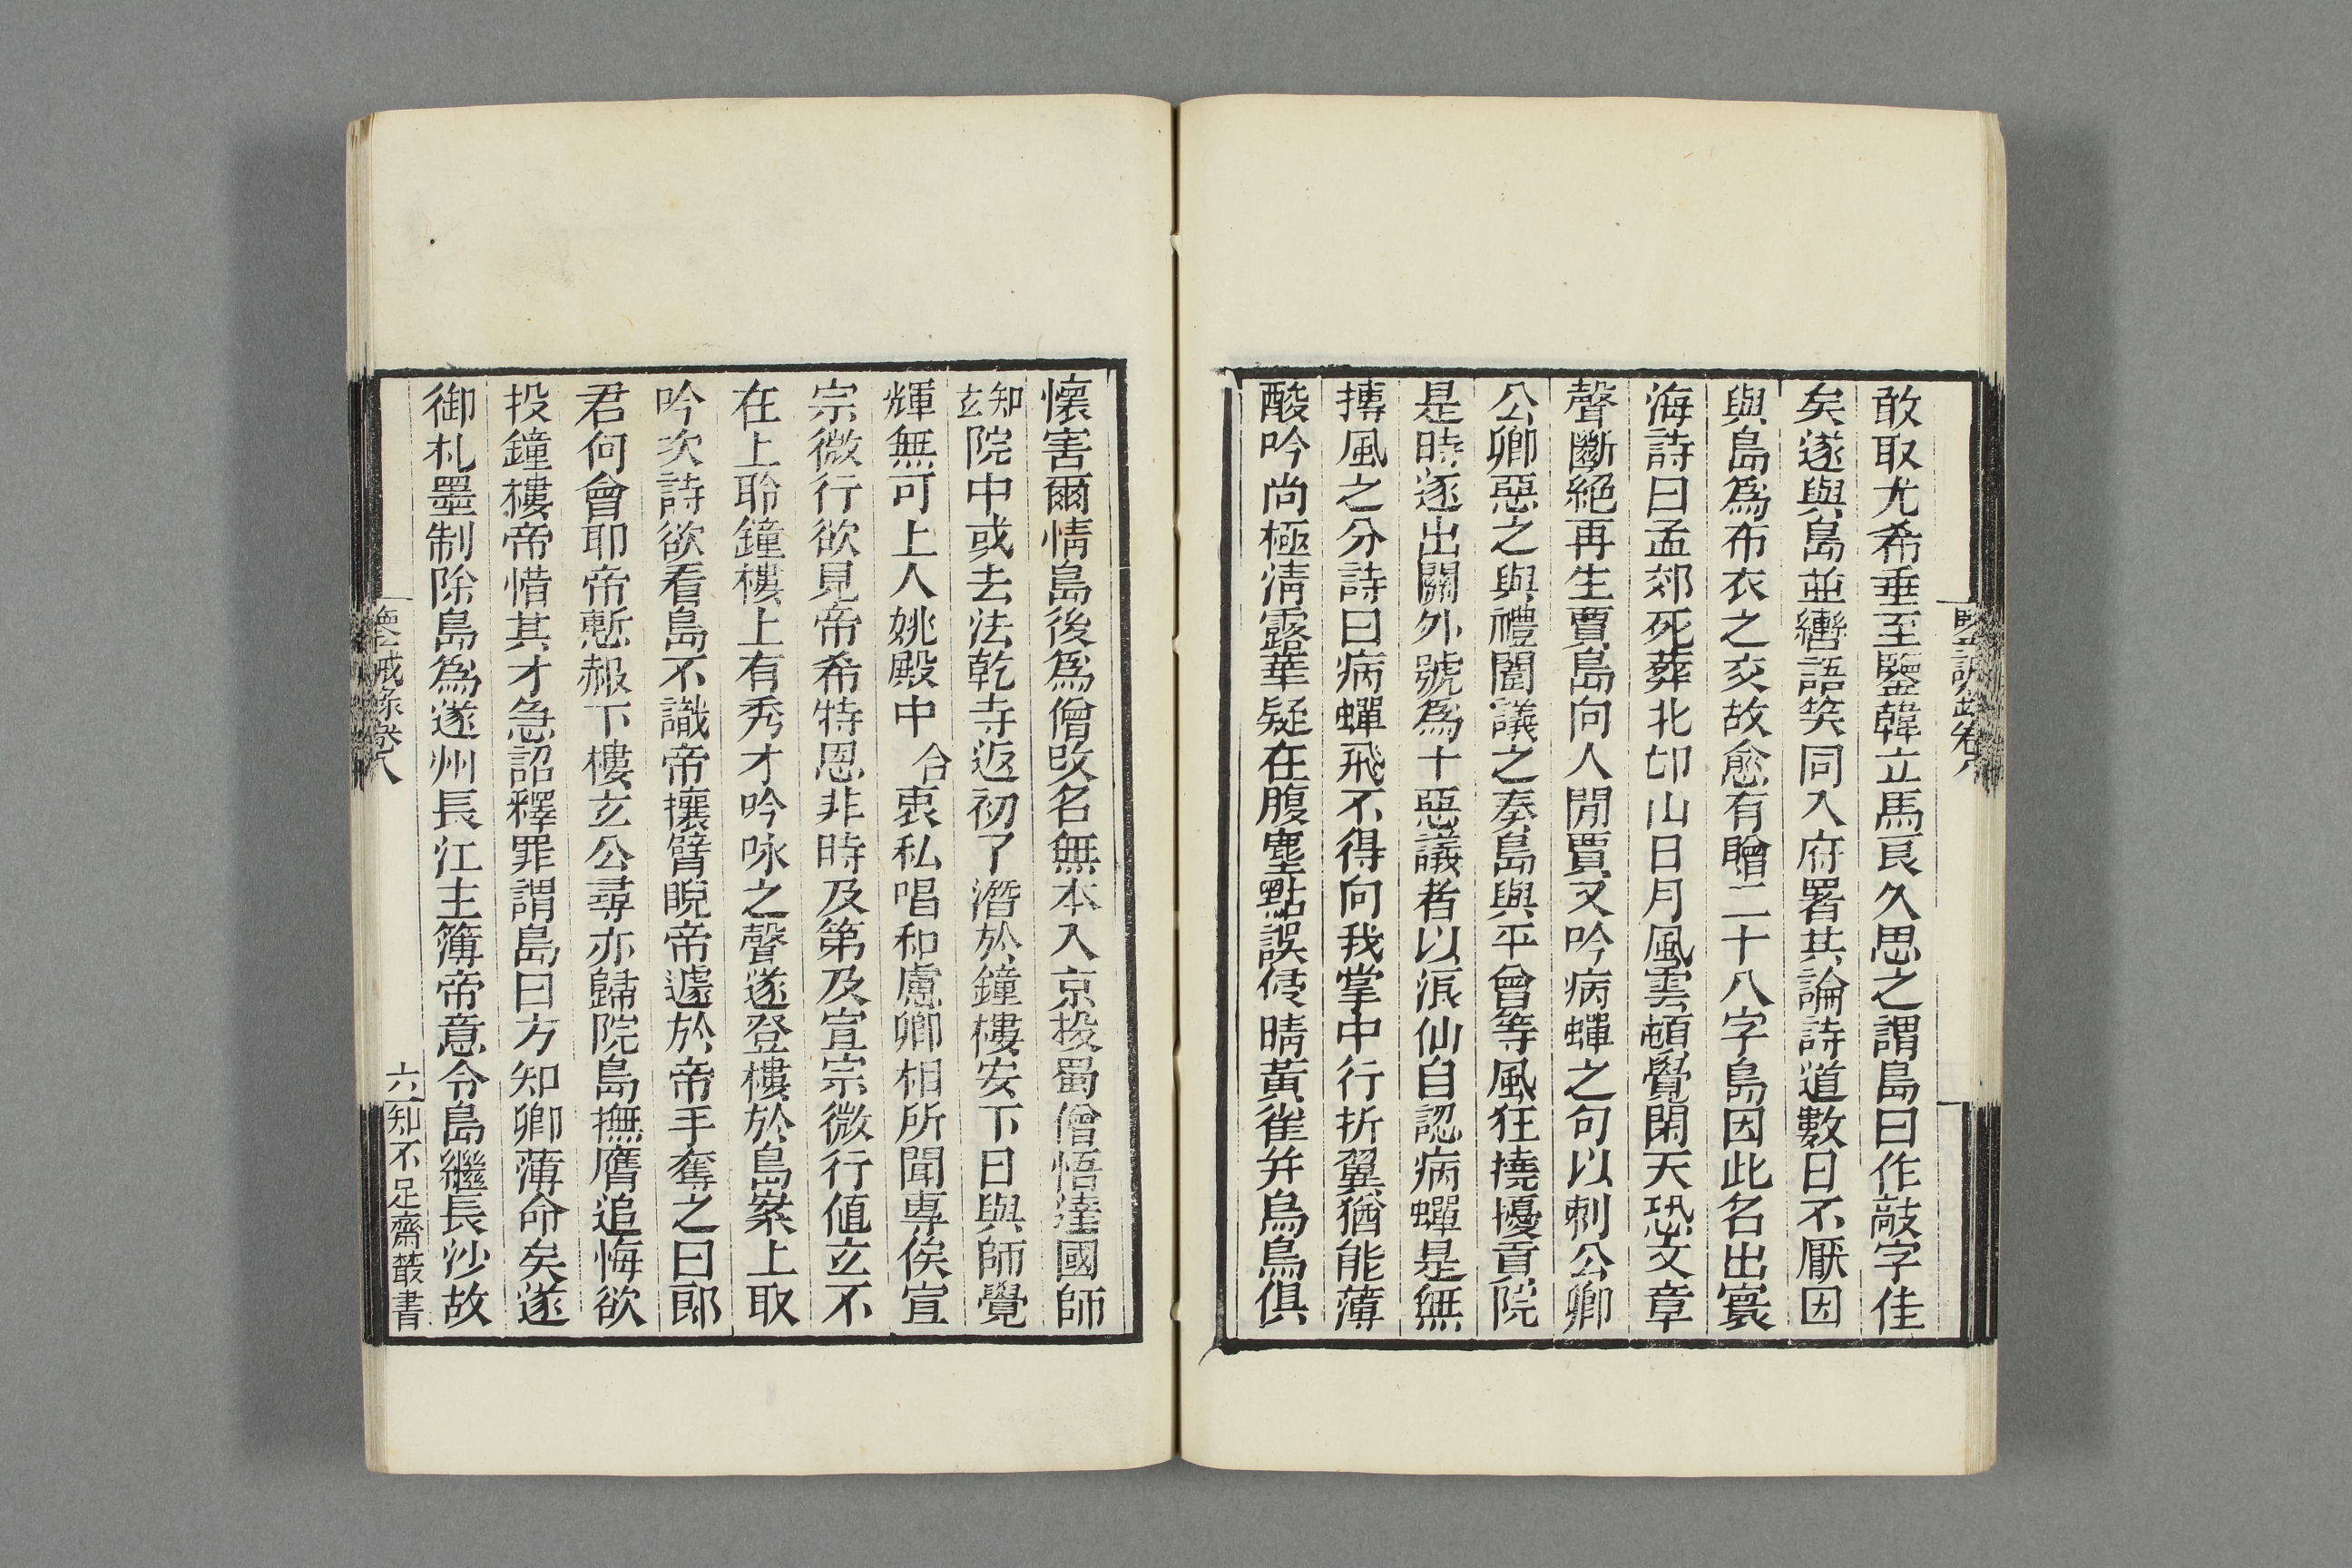 敢取尤希垂至鑒韓立馬良久思之謂島曰作敲字佳
矣遂與島並轡語笑同入府署共論詩道數日不厭因
與島爲布衣之交故愈有贈二十八字島因此名出寰
海詩曰孟郊死葬北邙山日月風雲頓覺閑天恐文章
聲斷絕再生賈島向人間賈又吟病蟬之句以刺公卿
公卿惡之與禮闈議之奏島與平曾等風狂撓擾貢院
是時逐出關外號爲十惡議者以浪仙自認病蟬是無
摶風之分詩曰病蟬飛不得向我掌中行折翼猶能薄
酸吟尚極淸露華疑在腹塵點誤侵晴黃雀并烏鳥俱
懷害爾情島後爲僧改名無本入京投蜀僧悟達國師
知玄院中或去法乾寺返初了潛於鐘樓安下日與師覺
輝無可上人姚殿中合衷私唱和慮卿相所聞專俟宣
宗微行欲見帝希特恩非時及第及宣宗微行値立不
在上聆鐘樓上有秀才吟咏之聲遂登樓於島案上取
吟次詩欲看島不識帝攘臂睨帝遽於帝手奪之曰郎
君何會耶帝慙赧下樓玄公尋亦歸院島撫膺追悔欲
投鐘樓帝惜其才急詔釋罪謂島曰方知卿薄命矣遂
御札墨制除島爲遂州長江主簿帝意令島繼長沙故
鑒誡錄卷八
六
知不足齋叢書